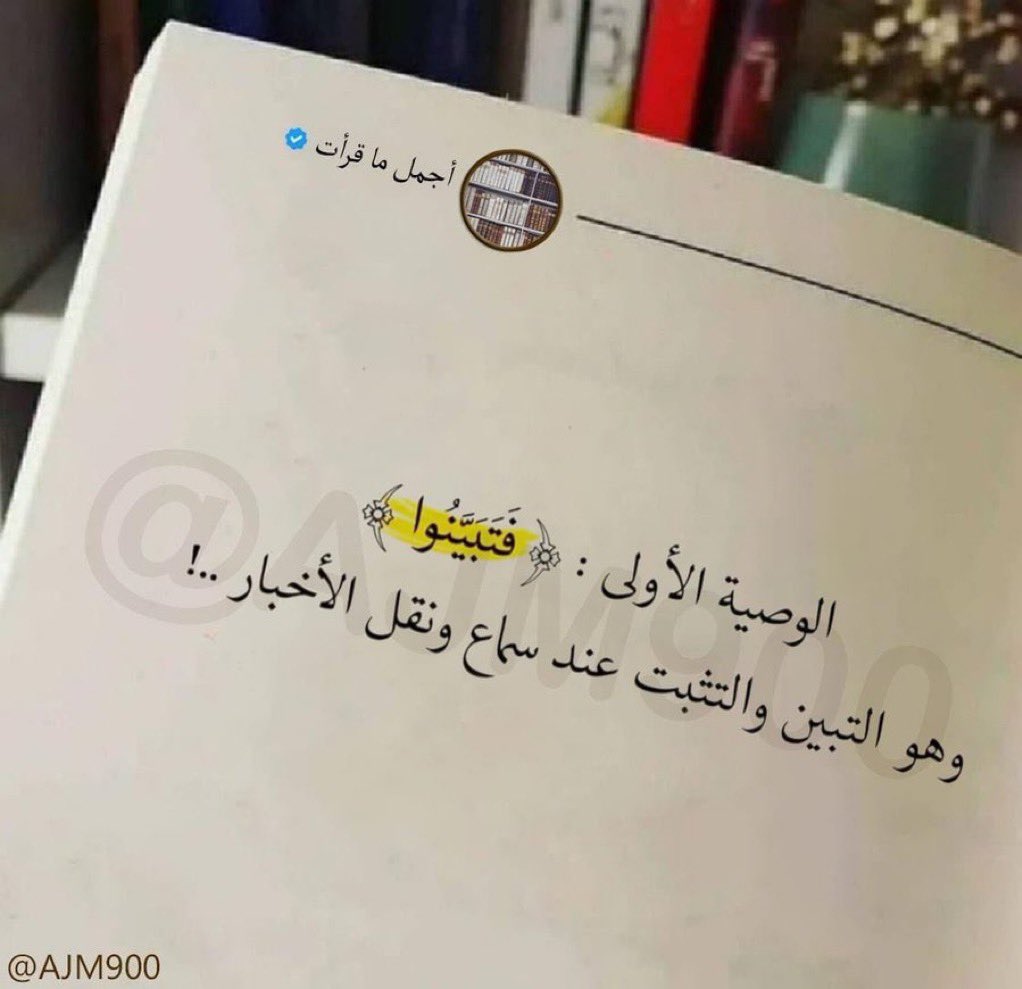 أجمل ما قرأت
الوصية الأولى : ﴿فَتَبَيَّنُوا﴾
وهو التبين والتثبت عند سماع ونقل الأخبار ..!
@AJM900
@AJM900